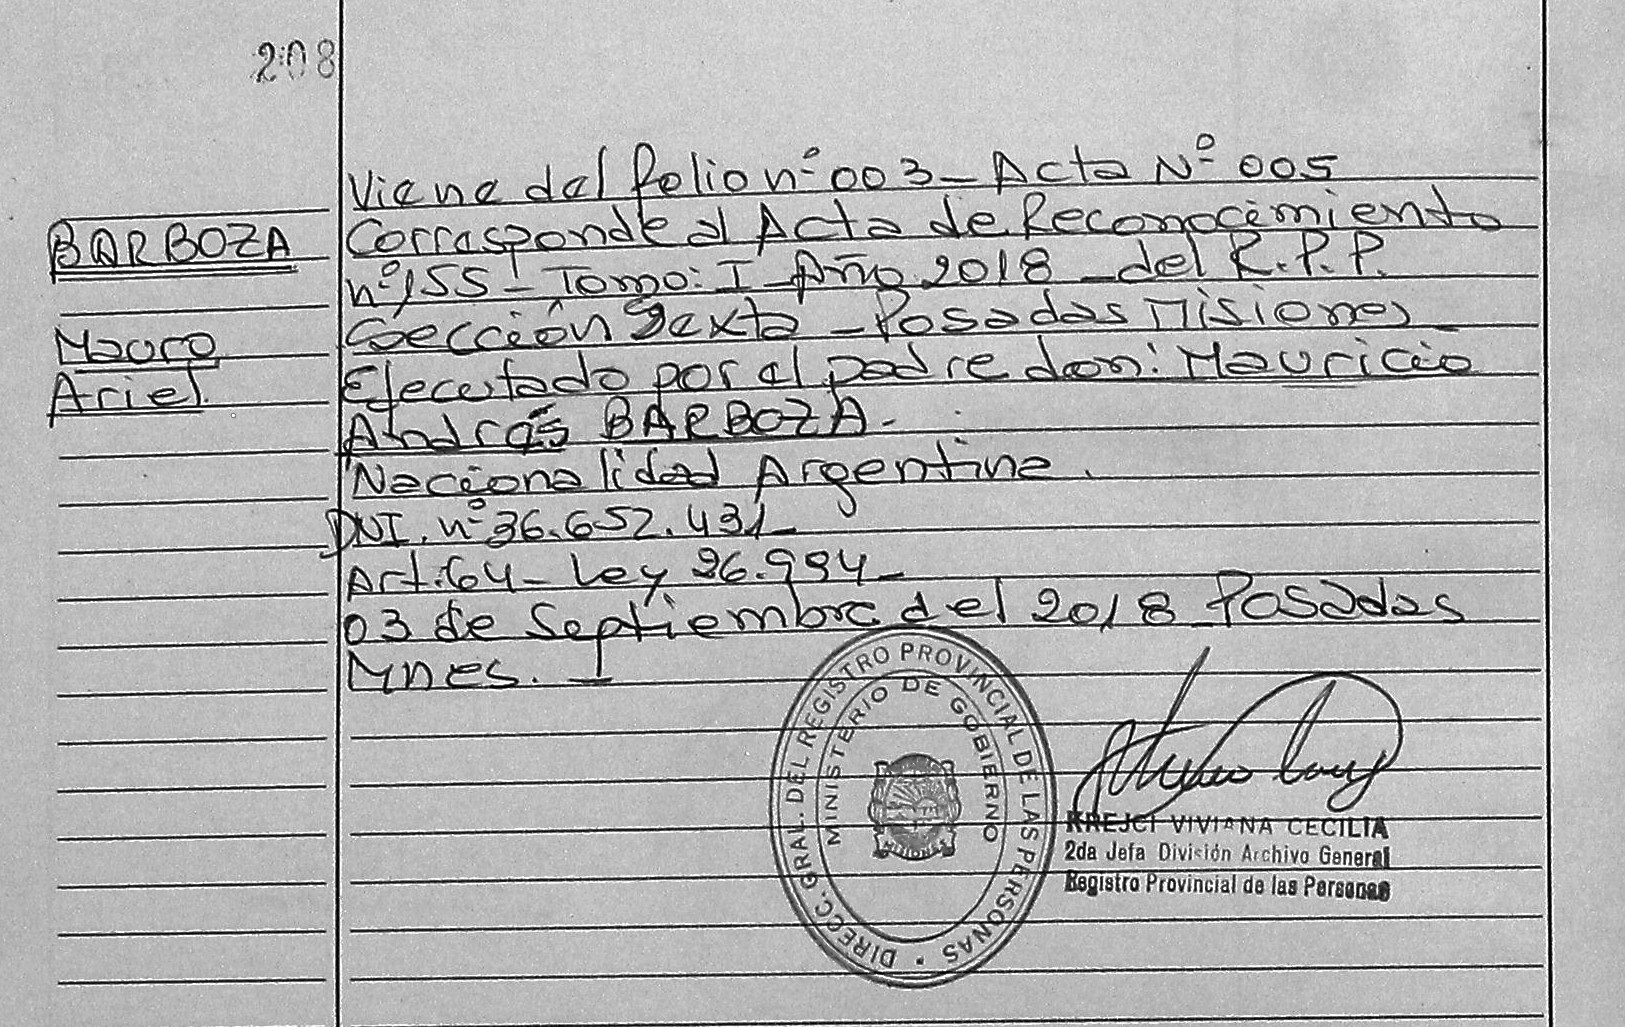 208
Viene del folio nº 003 - Acta Nº 005
BARBOZA
Corresponde al Acta de Reconocimiento
nº 155 - Tomo: I - Año 2018 - del R.P.P.
Mauro
Sección Sexta - Posadas Misiones -
Ariel.
Efectuado por el padre don: Mauricio
Andrés BARBOZA -
Nacionalidad Argentina.
DNI. nº 36.652.431 -
Art. 64 - Ley 26.994 -
03 de Septiembre del 2018 - Posadas
Mnes.
DIRECC. GRAL. DEL REGISTRO PROVINCIAL DE LAS PERSONAS
MINISTERIO DE GOBIERNO
MISIONES
KREJCI VIVIANA CECILIA
2da Jefa División Archivo General
Registro Provincial de las Personas